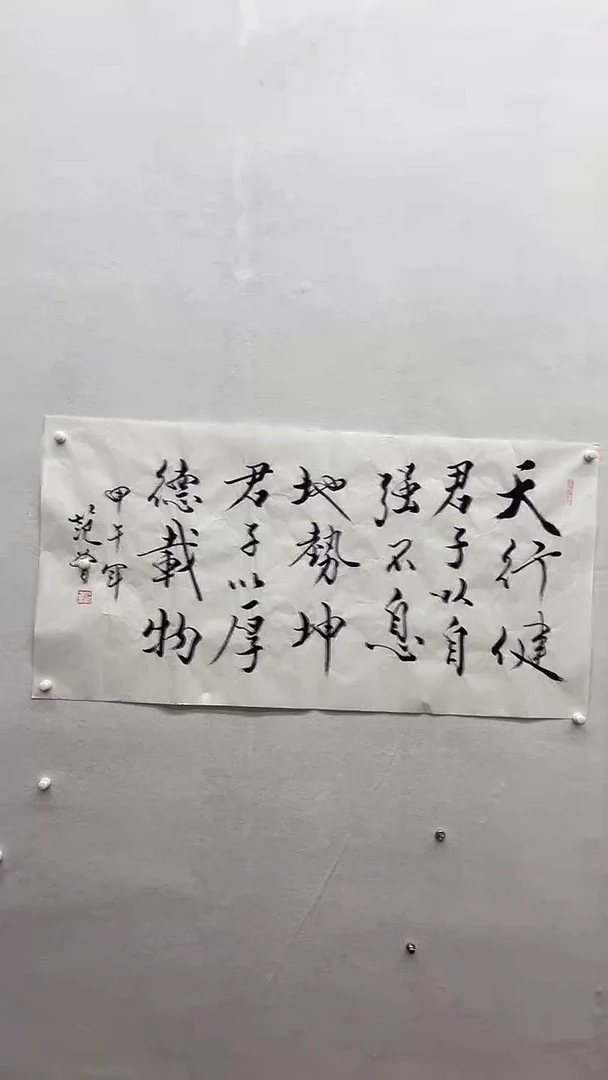 天行健
君子以自
强不息
地勢坤
君子以厚
德載物
甲午年
范曾